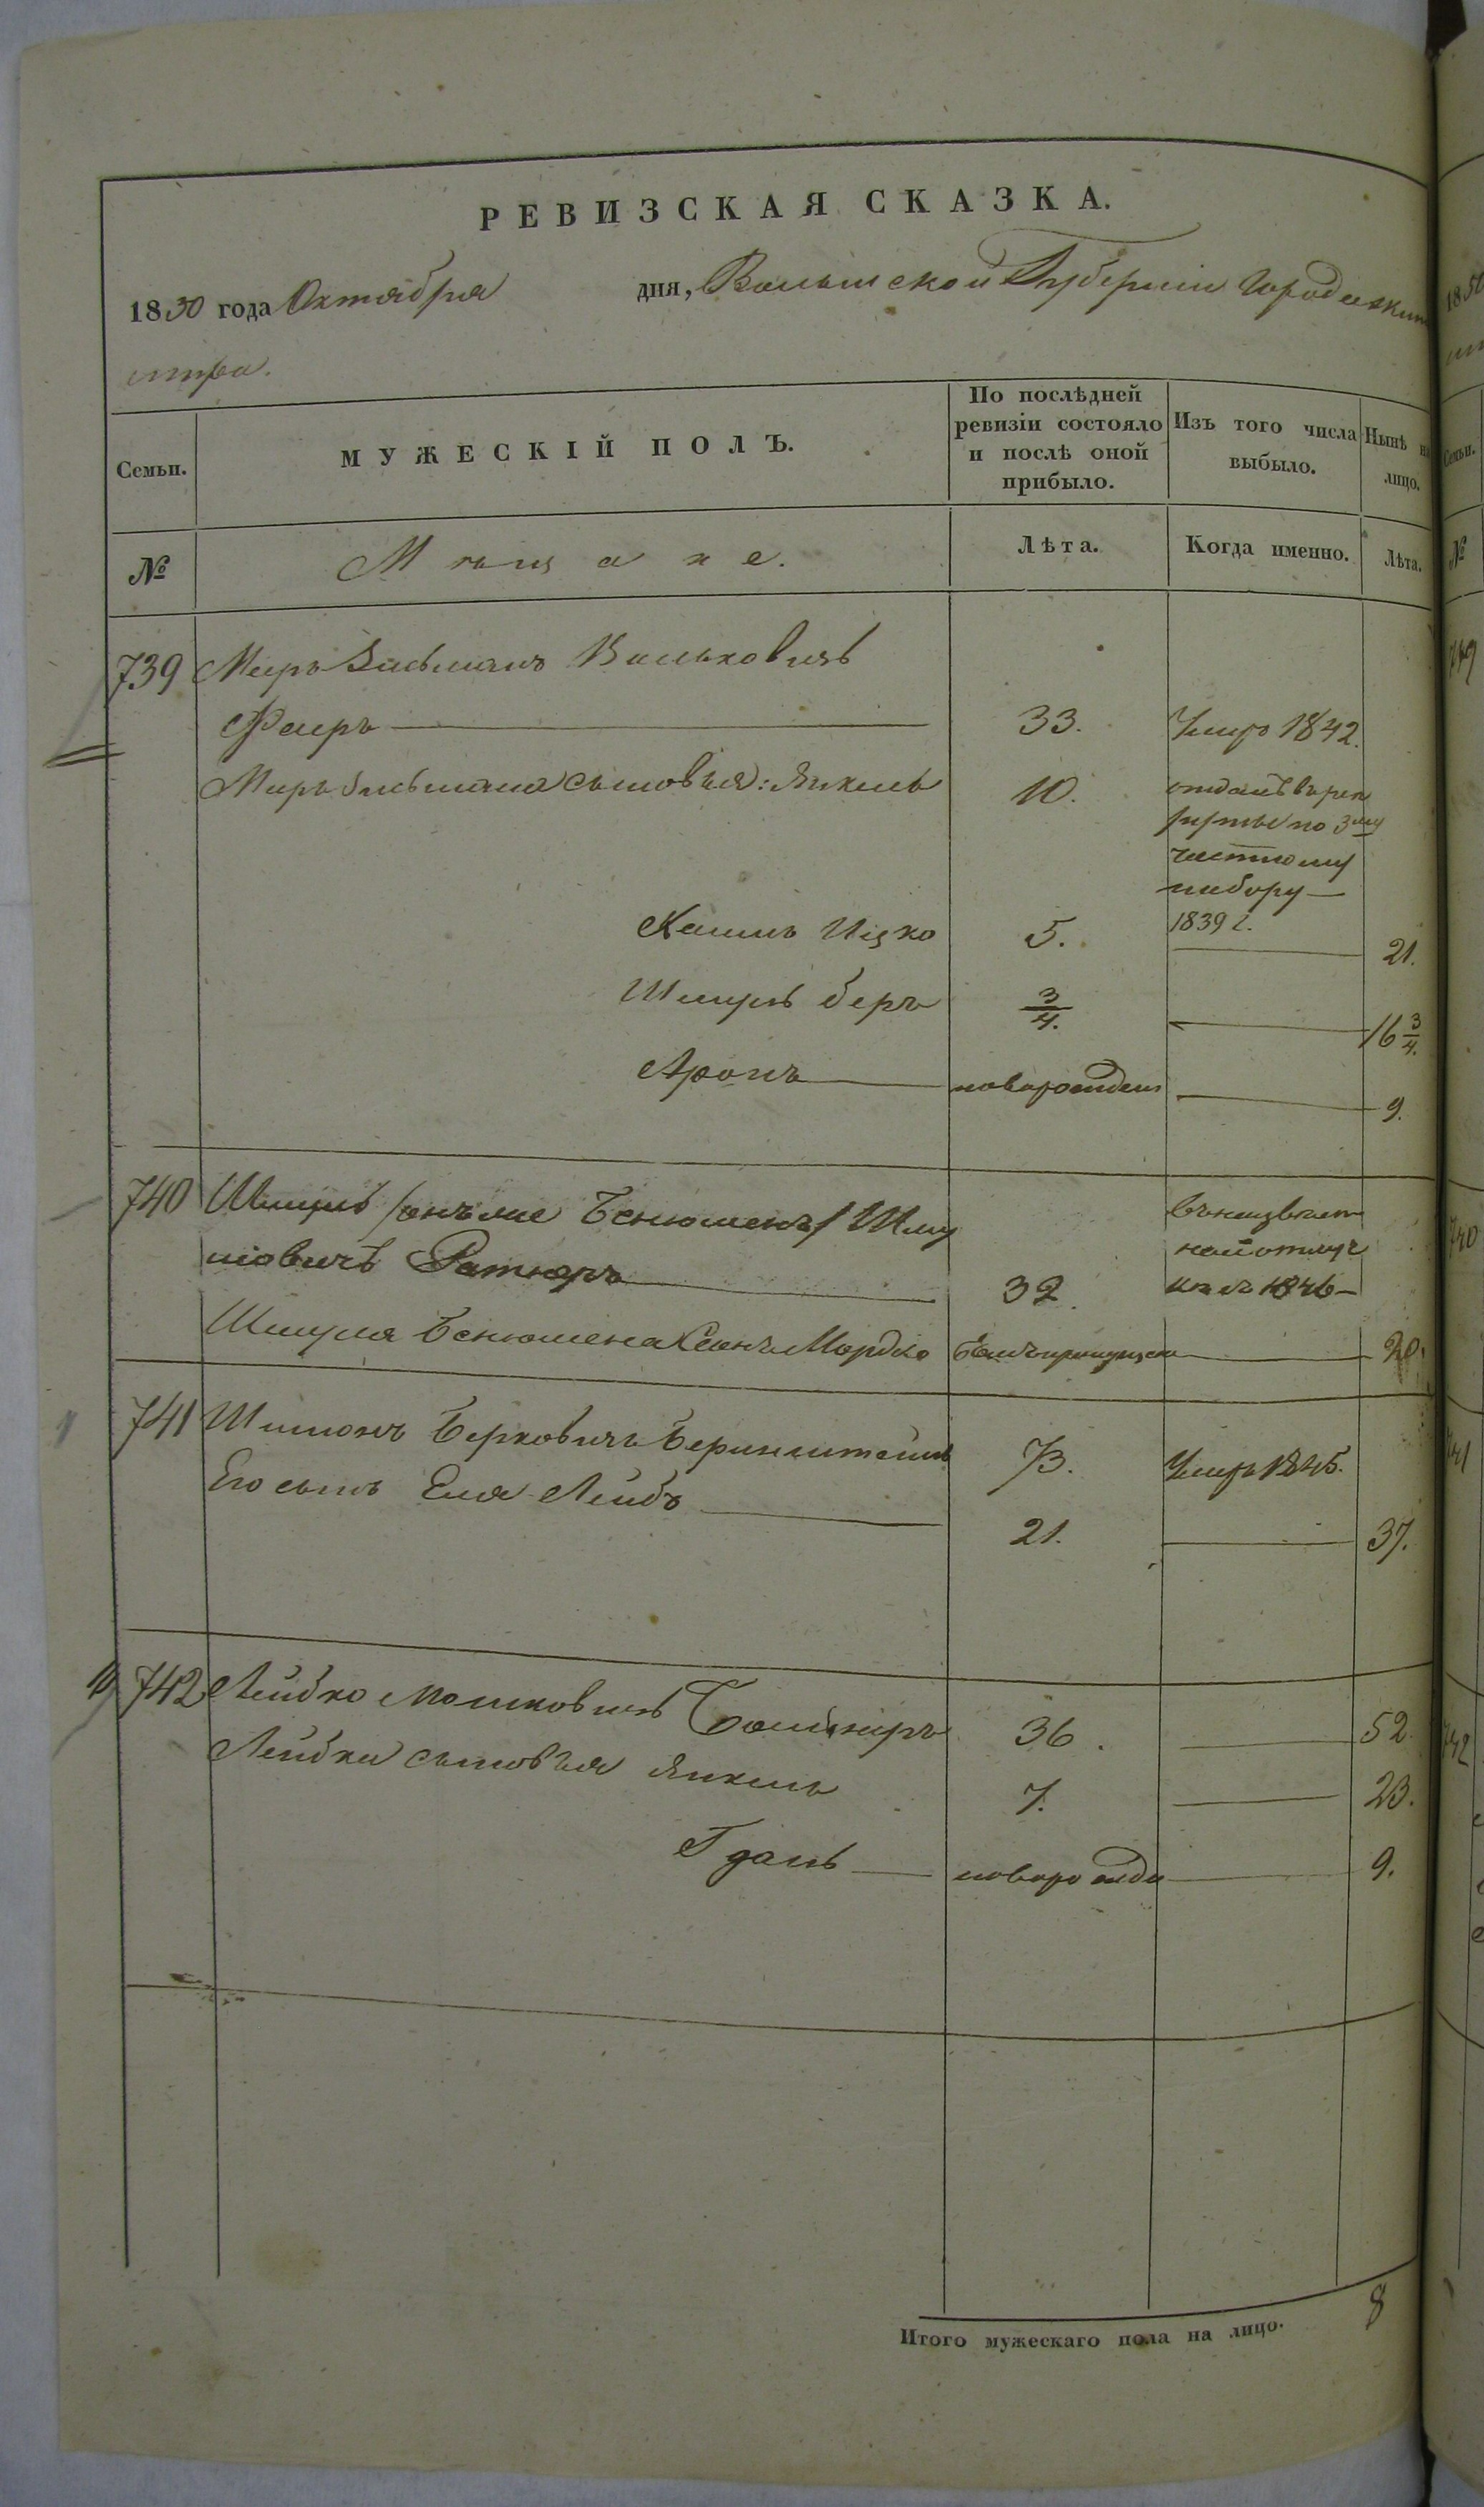 РЕВИЗСКАЯ СКАЗКА.
1850 года Октября дня, Волынской Губернии
Семьи.
МУЖЕСКІЙ ПОЛЪ.
По послѣдней ревизіи состояло и послѣ оной прибыло.
Изъ того числа выбыло.
Нынѣ на лицо.
№
Мѣщане.
Лѣта.
Когда именно.
Лѣта.
739 Меиръ Зисьманъ Вольковичъ
Фаеръ 33. Умеръ 1842.
Меиръ Зисьмана сыновья: Янкель 10. отданъ въ рек
руты по 3му
частному
набору
1839 г.
Іцко 5. 21.
Шмуль Беръ 3/4. 16 3/4.
Аронъ новорожден 9.
740 Шмуль /онъ же Бенюменъ/ Шму
левичъ 32. въ неизвѣст
ной отлуч
кѣ съ 1846
Шмуля Бенюмена сынъ Мордко былъ пропущенъ 20.
741 Шимонъ Берковичъ Беринштейнъ 73. Умеръ 1845.
Его сынъ Еля Лейбъ 21. 37.
742 Лейбко Мошковичъ 36. 52.
Лейбки сыновья Янкель 7. 23.
новорожде 9.
Итого мужескаго пола на лицо. 8